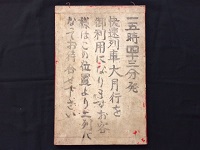 一五時四十三分発
快速列車大月行を
御利用になりますお客
様はこの位置より二列に
なってお待ち下さい